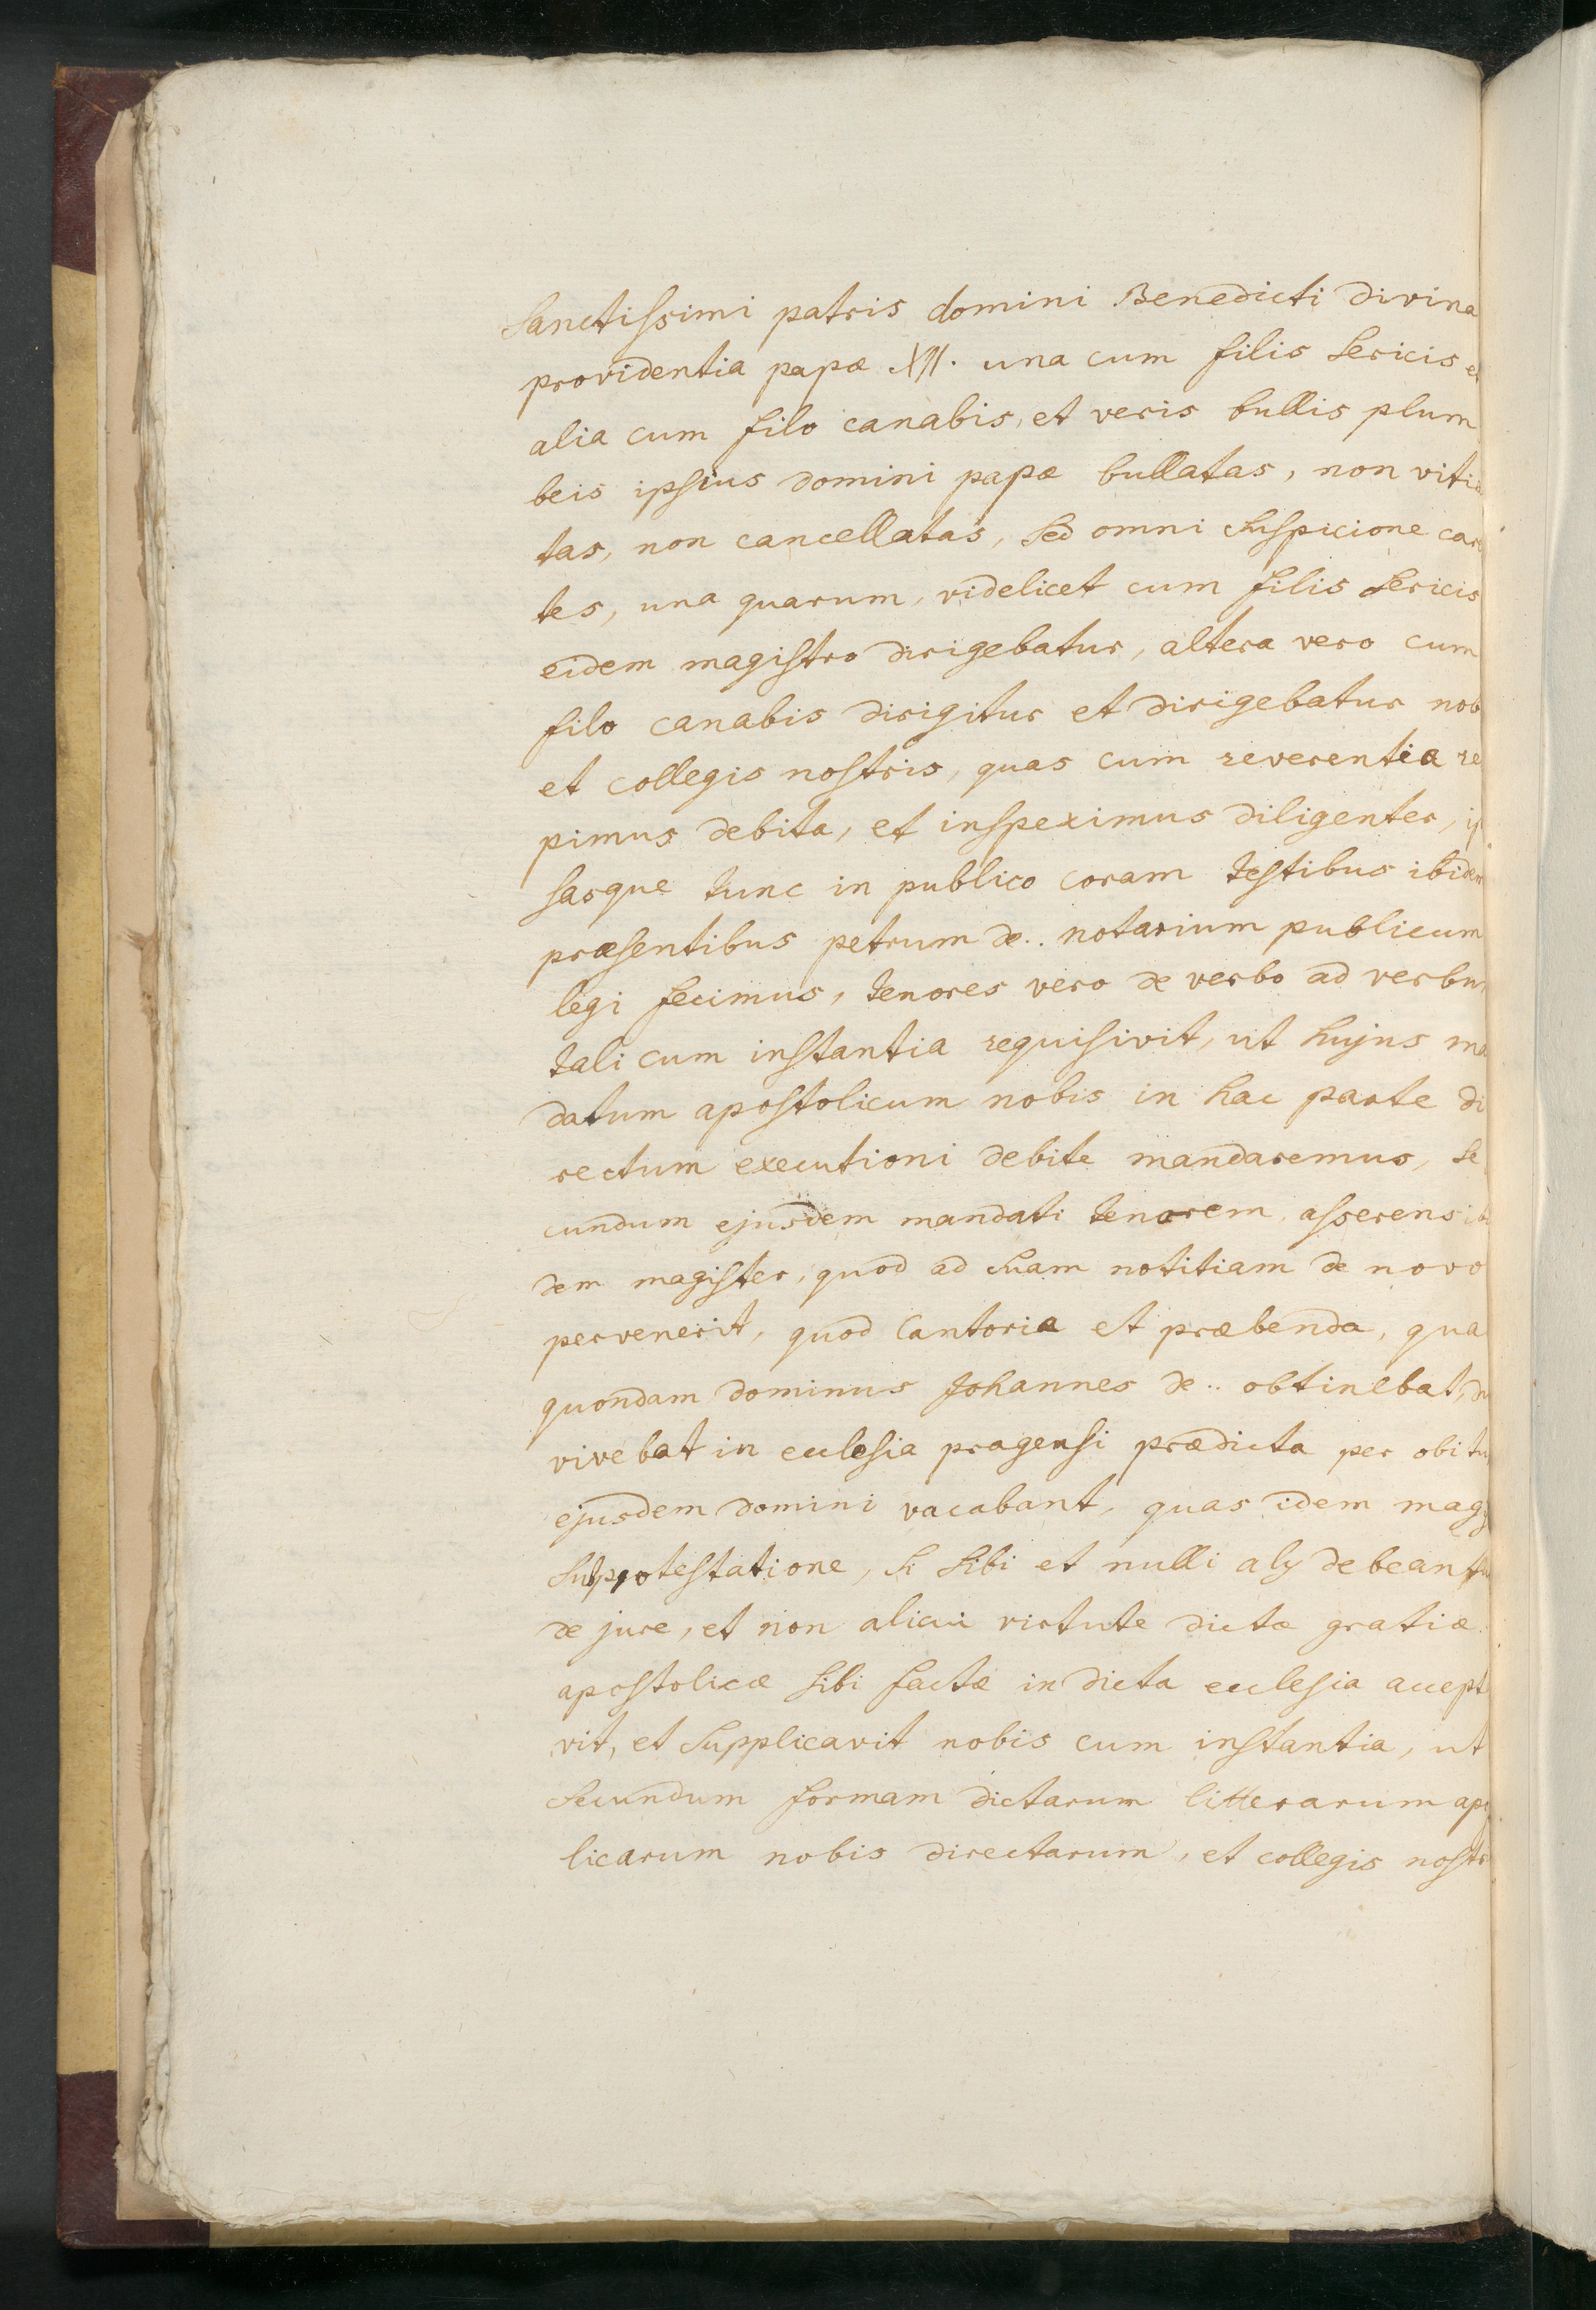 Sanctissimi patris domini Benedicti divina
providentia papæ XII. una cum filis sericis et
alia cum filo canabis, et veris bullis plum
beis ipsius domini papæ bullatas, non vitia
tas, non cancellatas, sed omni suspicione care
tes, una quarum, videlicet cum filis sericis
eidem magistro dirigebatur, altera vero cum
filo canabis dirigitur et dirigebatur nob
et collegis nostris, quas cum reverentia re
pimus debita, et inspeximus diligenter, ip
sasque tunc in publico coram testibus ibidem
præsentibus petrum de.. notarium publicum
legi fecimus, tenores vero de verbo ad verbu
tali cum instantia requisivit, ut hujus ma
datum apostolicum nobis in hac parte di
rectum executioni debite mandaremus, se
cundum ejusdem mandati tenorem, asserens
dem magister, quod ad suam notitiam de novo
pervenerit, quod Cantoria et præbenda, qua
quondam dominus Johannes de.. obtinebat, du
vivebat in ecclesia pragensi prædicta per obitu
ejusdem domini vacabant, quas idem mag
sub protestatione, si sibi et nulli alij debeantu
de jure, et non alicui virtute dictæ gratiæ
apostolicæ sibi factæ in dicta ecclesia accept
vit, et supplicavit nobis cum instantia, ut
secundum formam dictarum litterarum apo
licarum nobis directarum, et collegis nostr